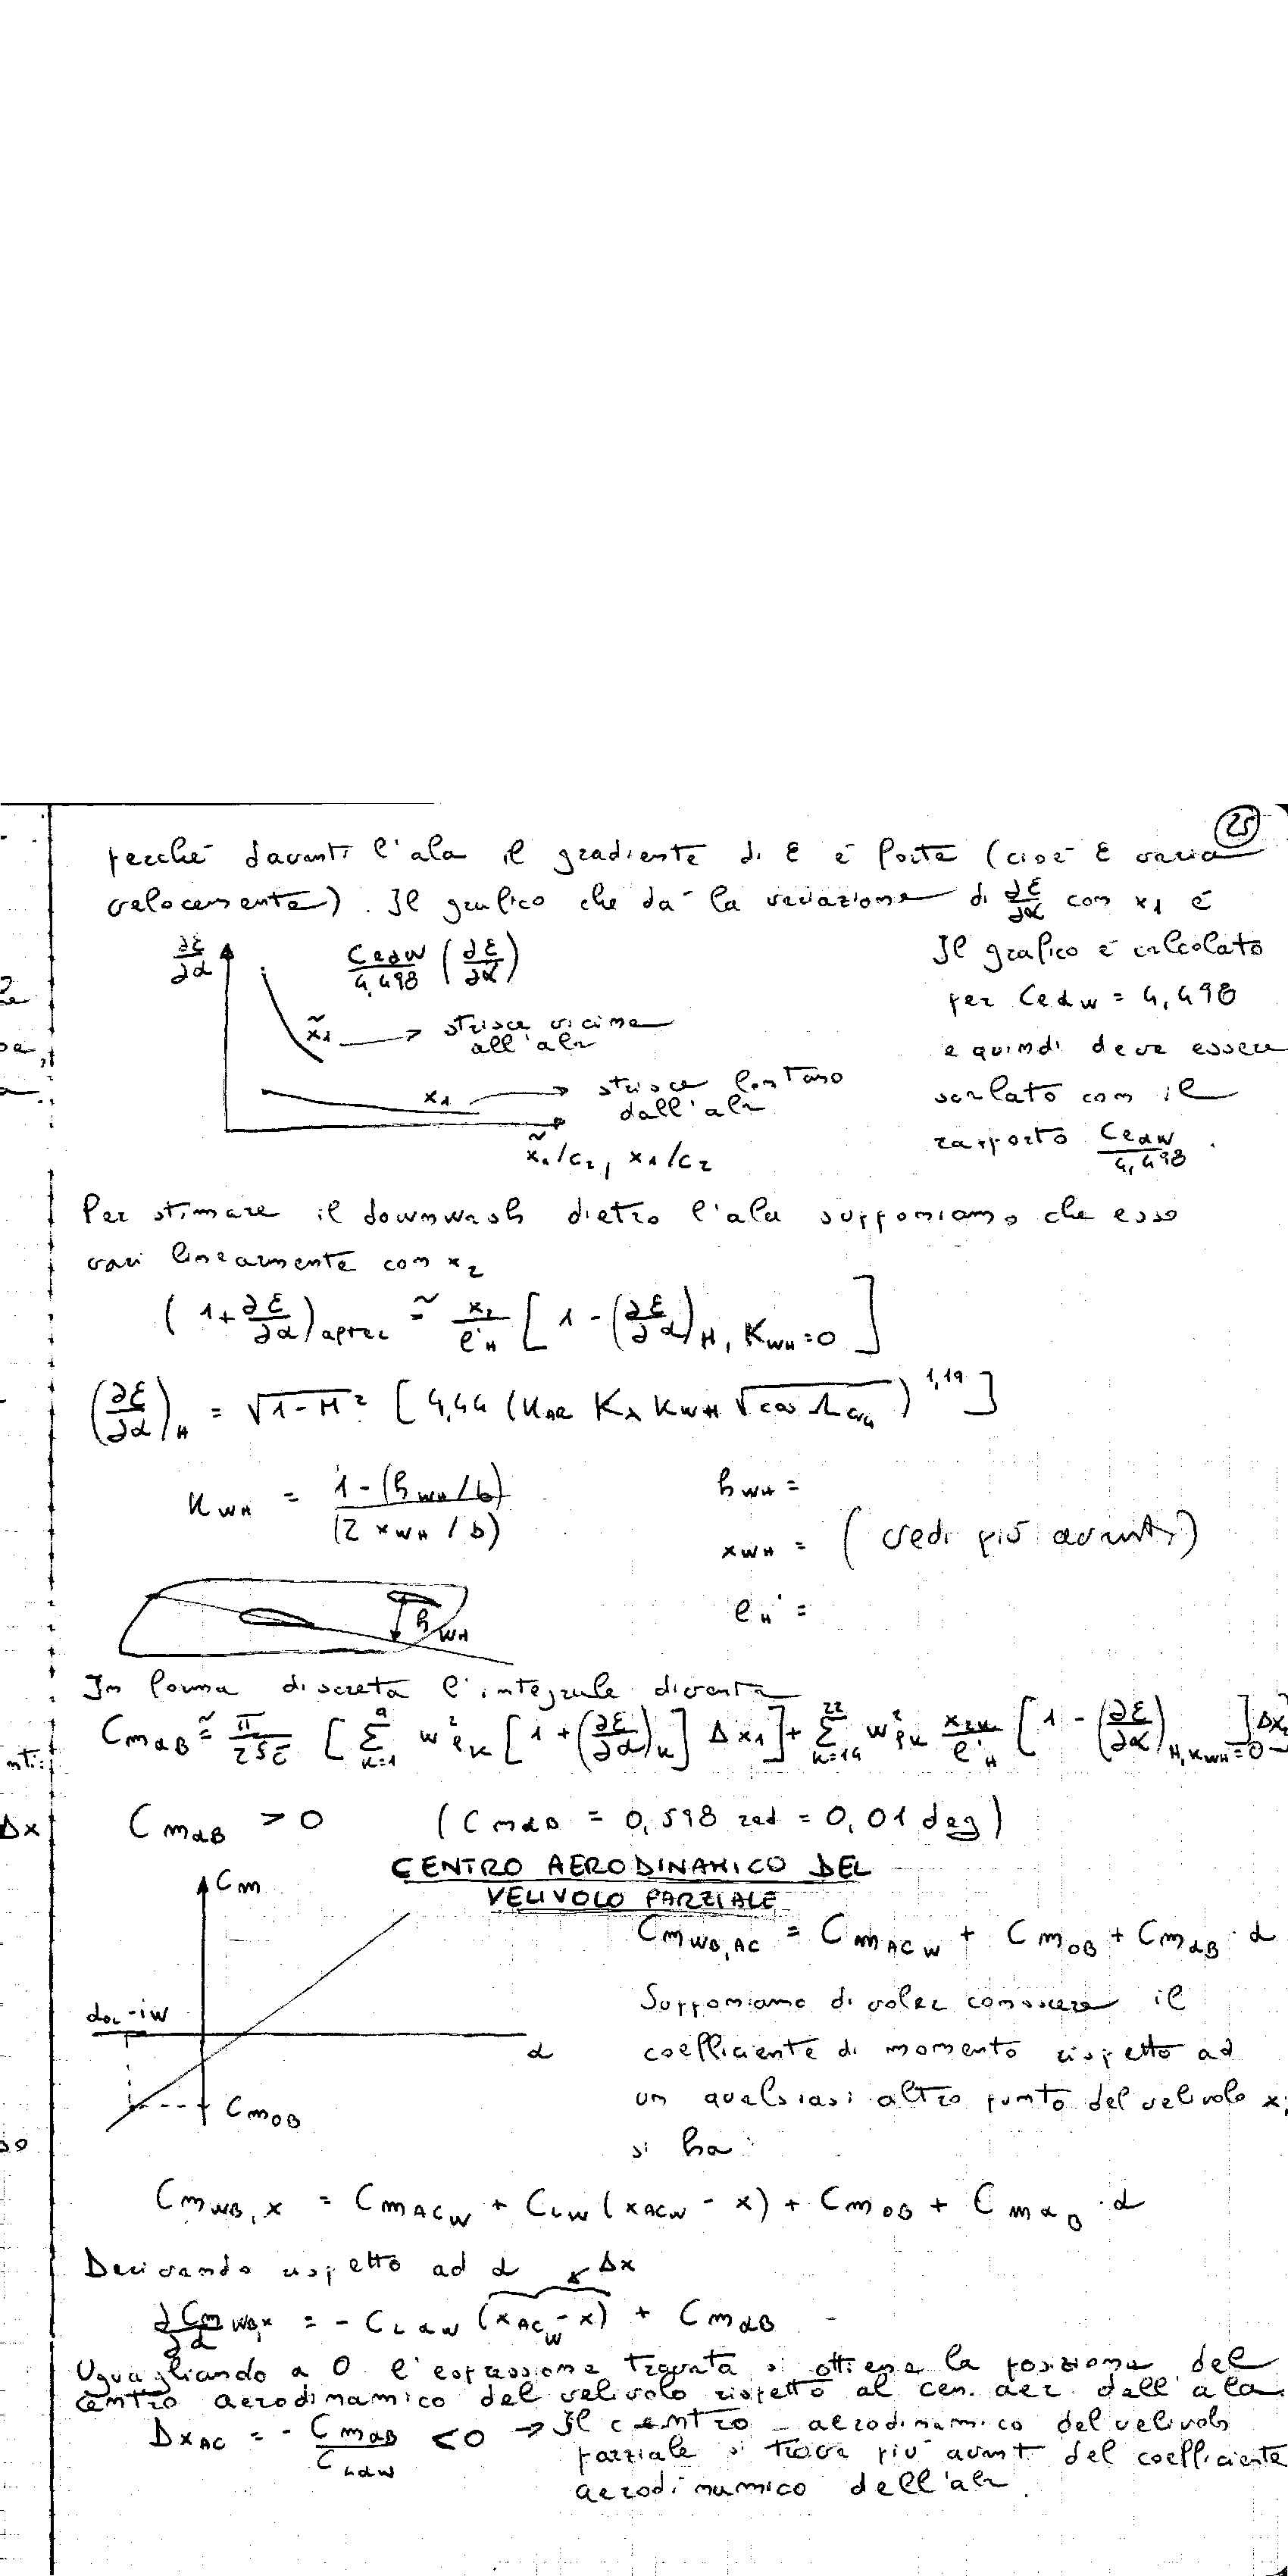 25
perché davanti l'ala il gradiente di ε è forte (cioè ε varia
velocemente). Il grafico che dà la variazione di ∂ε/∂α con x1 è
∂ε/∂α
CLαW/4,498 (∂ε/∂α)
Il grafico è calcolato
per CLαW = 4,498
e quindi deve essere
scalato con il
rapporto CLαW/4,498.
x̃1 → strisce vicine
all'ala
x1 → strisce lontano
dall'ala
x̃1/c2, x1/c2
Per stimare il downwash dietro l'ala supponiamo che esso
vari linearmente con x2
(1+∂ε/∂α)aprec ≅ x2/l'H [1-(∂ε/∂α)H, KWH=0]
(∂ε/∂α)H = √1-M² [4,44 (KAR Kλ KWH √cos Λc/4)^1,19]
KWH = 1-(hWH/b) / (2 xWH/b)
hWH =
xWH = (vedi più avanti)
l'H =
hWH
In forma discreta l'integrale diventa
CmαB ≅ π/2Sc̄ [Σ k=1 9 w²fK [1+(∂ε/∂α)K] Δx1] + Σ k=14 22 w²fK x2K/l'H [1-(∂ε/∂α)H,KWH=0] Δx2
nti:
Δx
CmαB > 0 (CmαB = 0,598 rad = 0,01 deg)
CENTRO AERODINAMICO DEL
VELIVOLO PARZIALE
Cm
α0L-iW
α
Cm0B
CmWB,AC = CmACW + Cm0B + CmαB · α
Supponiamo di voler conoscere il
coefficiente di momento rispetto ad
un qualsiasi altro punto del velivolo x;
si ha:
CmWB,x = CmACW + CLW (xACW - x) + Cm0B + CmαB · α
Derivando rispetto ad α
Δx
∂CmWB,x/∂α = - CLαW (xACW - x) + CmαB
Uguagliando a 0 l'espressione trovata si ottiene la posizione del
centro aerodinamico del velivolo rispetto al cen. aer. dell'ala.
ΔxAC = - CmαB/CLαW < 0 → Il centro aerodinamico del velivolo
parziale si trova più avanti del coefficiente
aerodinamico dell'ala.